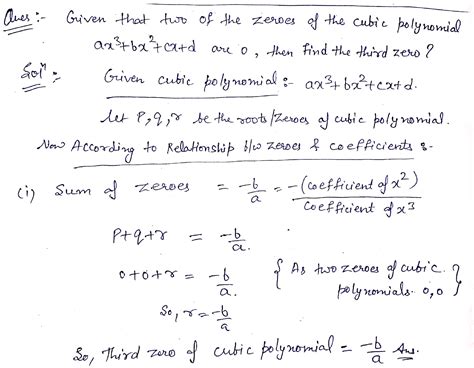 Ques :- Given that two of the zeroes of the cubic polynomial
ax³+bx²+cx+d are 0, then find the third zero?
Solⁿ :- Given cubic polynomial :- ax³+bx²+cx+d.
let P, q, r be the roots/zeroes of cubic polynomial.
Now According to Relationship b/w zeroes & coefficients :-
(i) Sum of zeroes = -b/a = -(coefficient of x²)/Coefficient of x³
P+q+r = -b/a.
0+0+r = -b/a. { As two zeroes of cubic polynomials. 0,0 }
So, r = -b/a
So, Third zero of cubic polynomial = -b/a Ans.